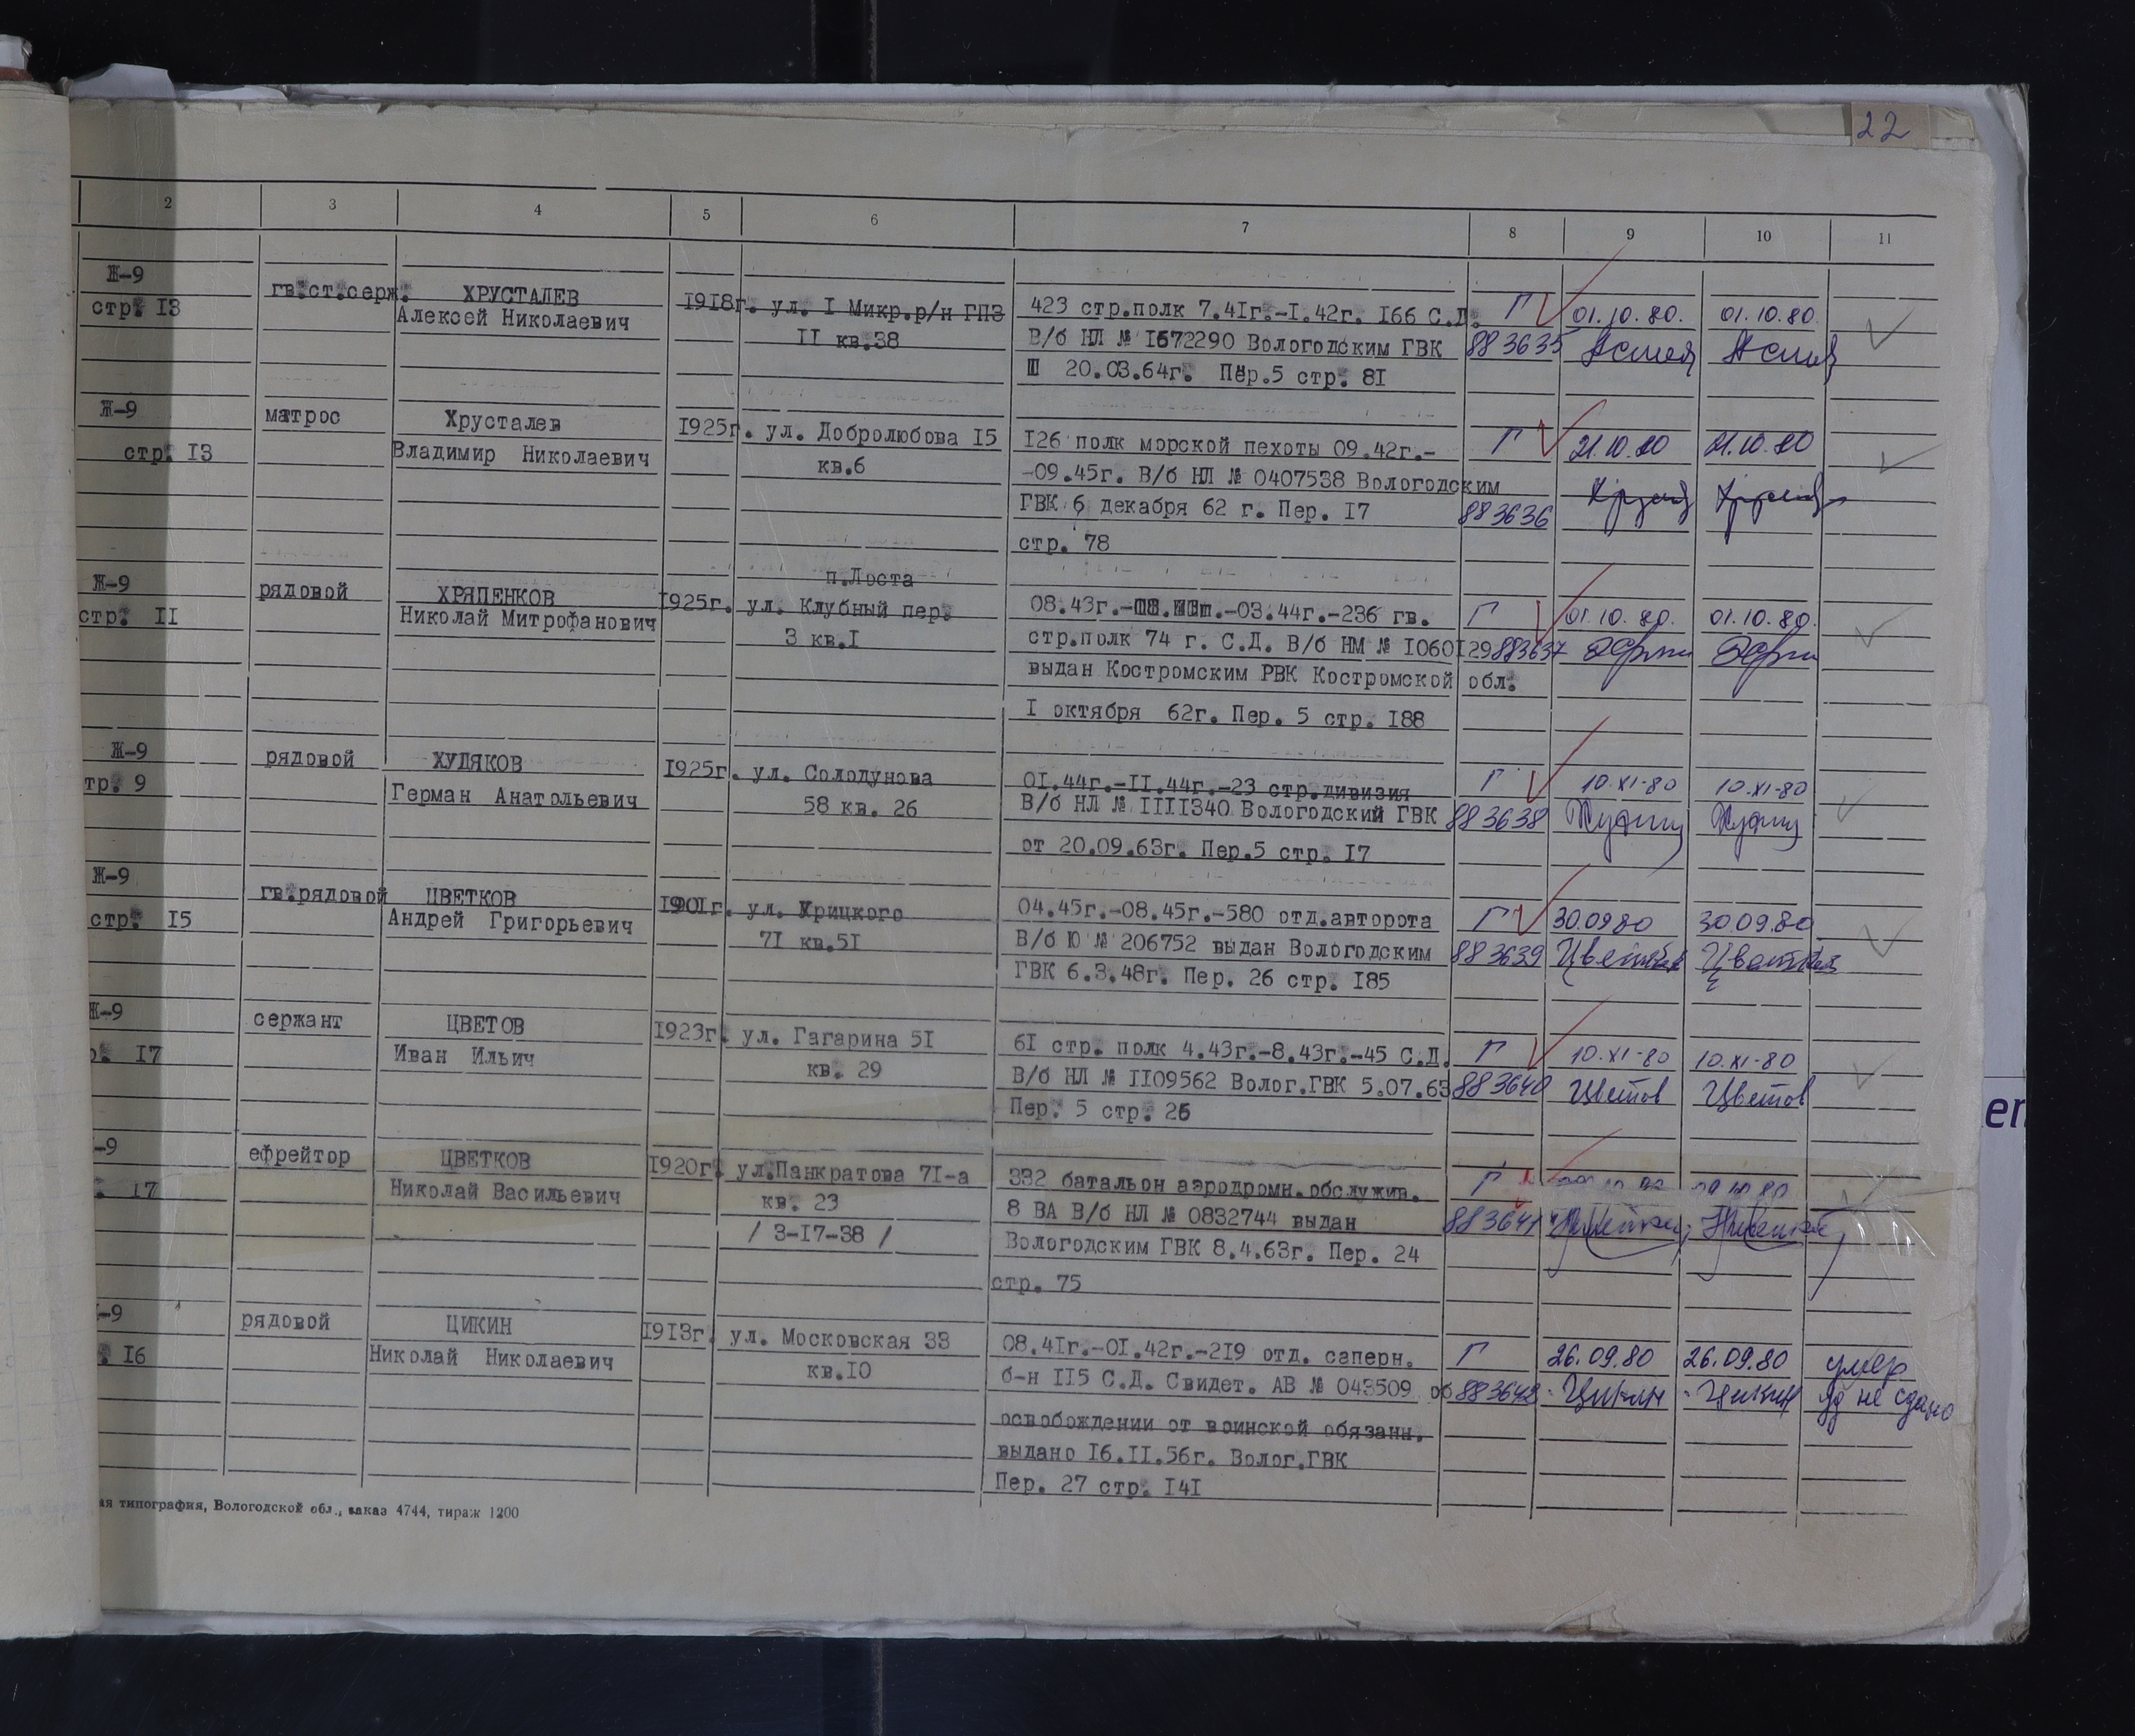 22
2 3 4 5 6 7 8 9 10 11
Ж-9
стр. 13
гв.ст.серж.
ХРУСТАЛЕВ
Алексей Николаевич
1918г.
ул. I Микр.р/н ГПЗ
II кв.38
423 стр.полк 7.41г.-I.42г. 166 С.Д.
В/б НЛ № 1672290 Вологодским ГВК
20.03.64г. Пер.5 стр. 81
Г
883635
01.10.80.
01.10.80.
Ж-9
стр. 13
матрос
Хрусталев
Владимир Николаевич
1925г.
ул. Добролюбова 15
кв.6
126 полк морской пехоты 09.42г.-
-09.45г. В/б НЛ № 0407538 Вологодским
ГВК 6 декабря 62 г. Пер. 17
стр. 78
Г
883636
21.10.80
21.10.80
Ж-9
стр. II
рядовой
ХРЯПЕНКОВ
Николай Митрофанович
1925г.
п.Лоста
ул. Клубный пер.
3 кв.I
08.43г.- -03.44г.-236 гв.
стр.полк 74 г. С.Д. В/б НМ № 1060129
выдан Костромским РВК Костромской обл.
I октября 62г. Пер. 5 стр. 188
Г
883637
01.10.80.
01.10.80.
Ж-9
тр. 9
рядовой
ХУДЯКОВ
Герман Анатольевич
1925г.
ул. Солодунова
58 кв. 26
01.44г.-II.44г.-23 стр.дивизия
В/б НЛ № IIII340 Вологодский ГВК
от 20.09.63г. Пер.5 стр. 17
Г
883638
10.XI-80
10.XI-80
Ж-9
стр. 15
гв.рядовой
ЦВЕТКОВ
Андрей Григорьевич
1901г.
ул. Урицкого
71 кв.51
04.45г.-08.45г.-580 отд.авторота
В/б Ю № 206752 выдан Вологодским
ГВК 6.3.48г. Пер. 26 стр. 185
Г
883639
30.09.80
30.09.80
Ж-9
р. 17
сержант
ЦВЕТОВ
Иван Ильич
1923г.
ул. Гагарина 51
кв. 29
61 стр. полк 4.43г.-8.43г.-45 С.Д.
В/б НЛ № II09562 Волог.ГВК 5.07.63
Пер. 5 стр. 26
Г
883640
10.XI-80
10.XI-80
Цветов
Цветов
-9
. 17
ефрейтор
ЦВЕТКОВ
Николай Васильевич
1920г.
ул.Панкратова 71-а
кв. 23
/ 3-17-38 /
332 батальон аэродромн.обслужив.
8 ВА В/б НЛ № 0832744 выдан
Вологодским ГВК 8.4.63г. Пер. 24
стр. 75
Г
883641
-9
. 16
рядовой
ЦИКИН
Николай Николаевич
1913г.
ул. Московская 33
кв.10
08.41г.-01.42г.-219 отд. саперн.
б-н 115 С.Д. Свидет. АВ № 043509 об
освобождении от воинской обязанн.
выдано 16.II.56г. Волог.ГВК
Пер. 27 стр. 141
Г
883642
26.09.80
26.09.80
Цикин
Цикин
умер
уд не сдано
ая типография, Вологодской обл., заказ 4744, тираж 1200